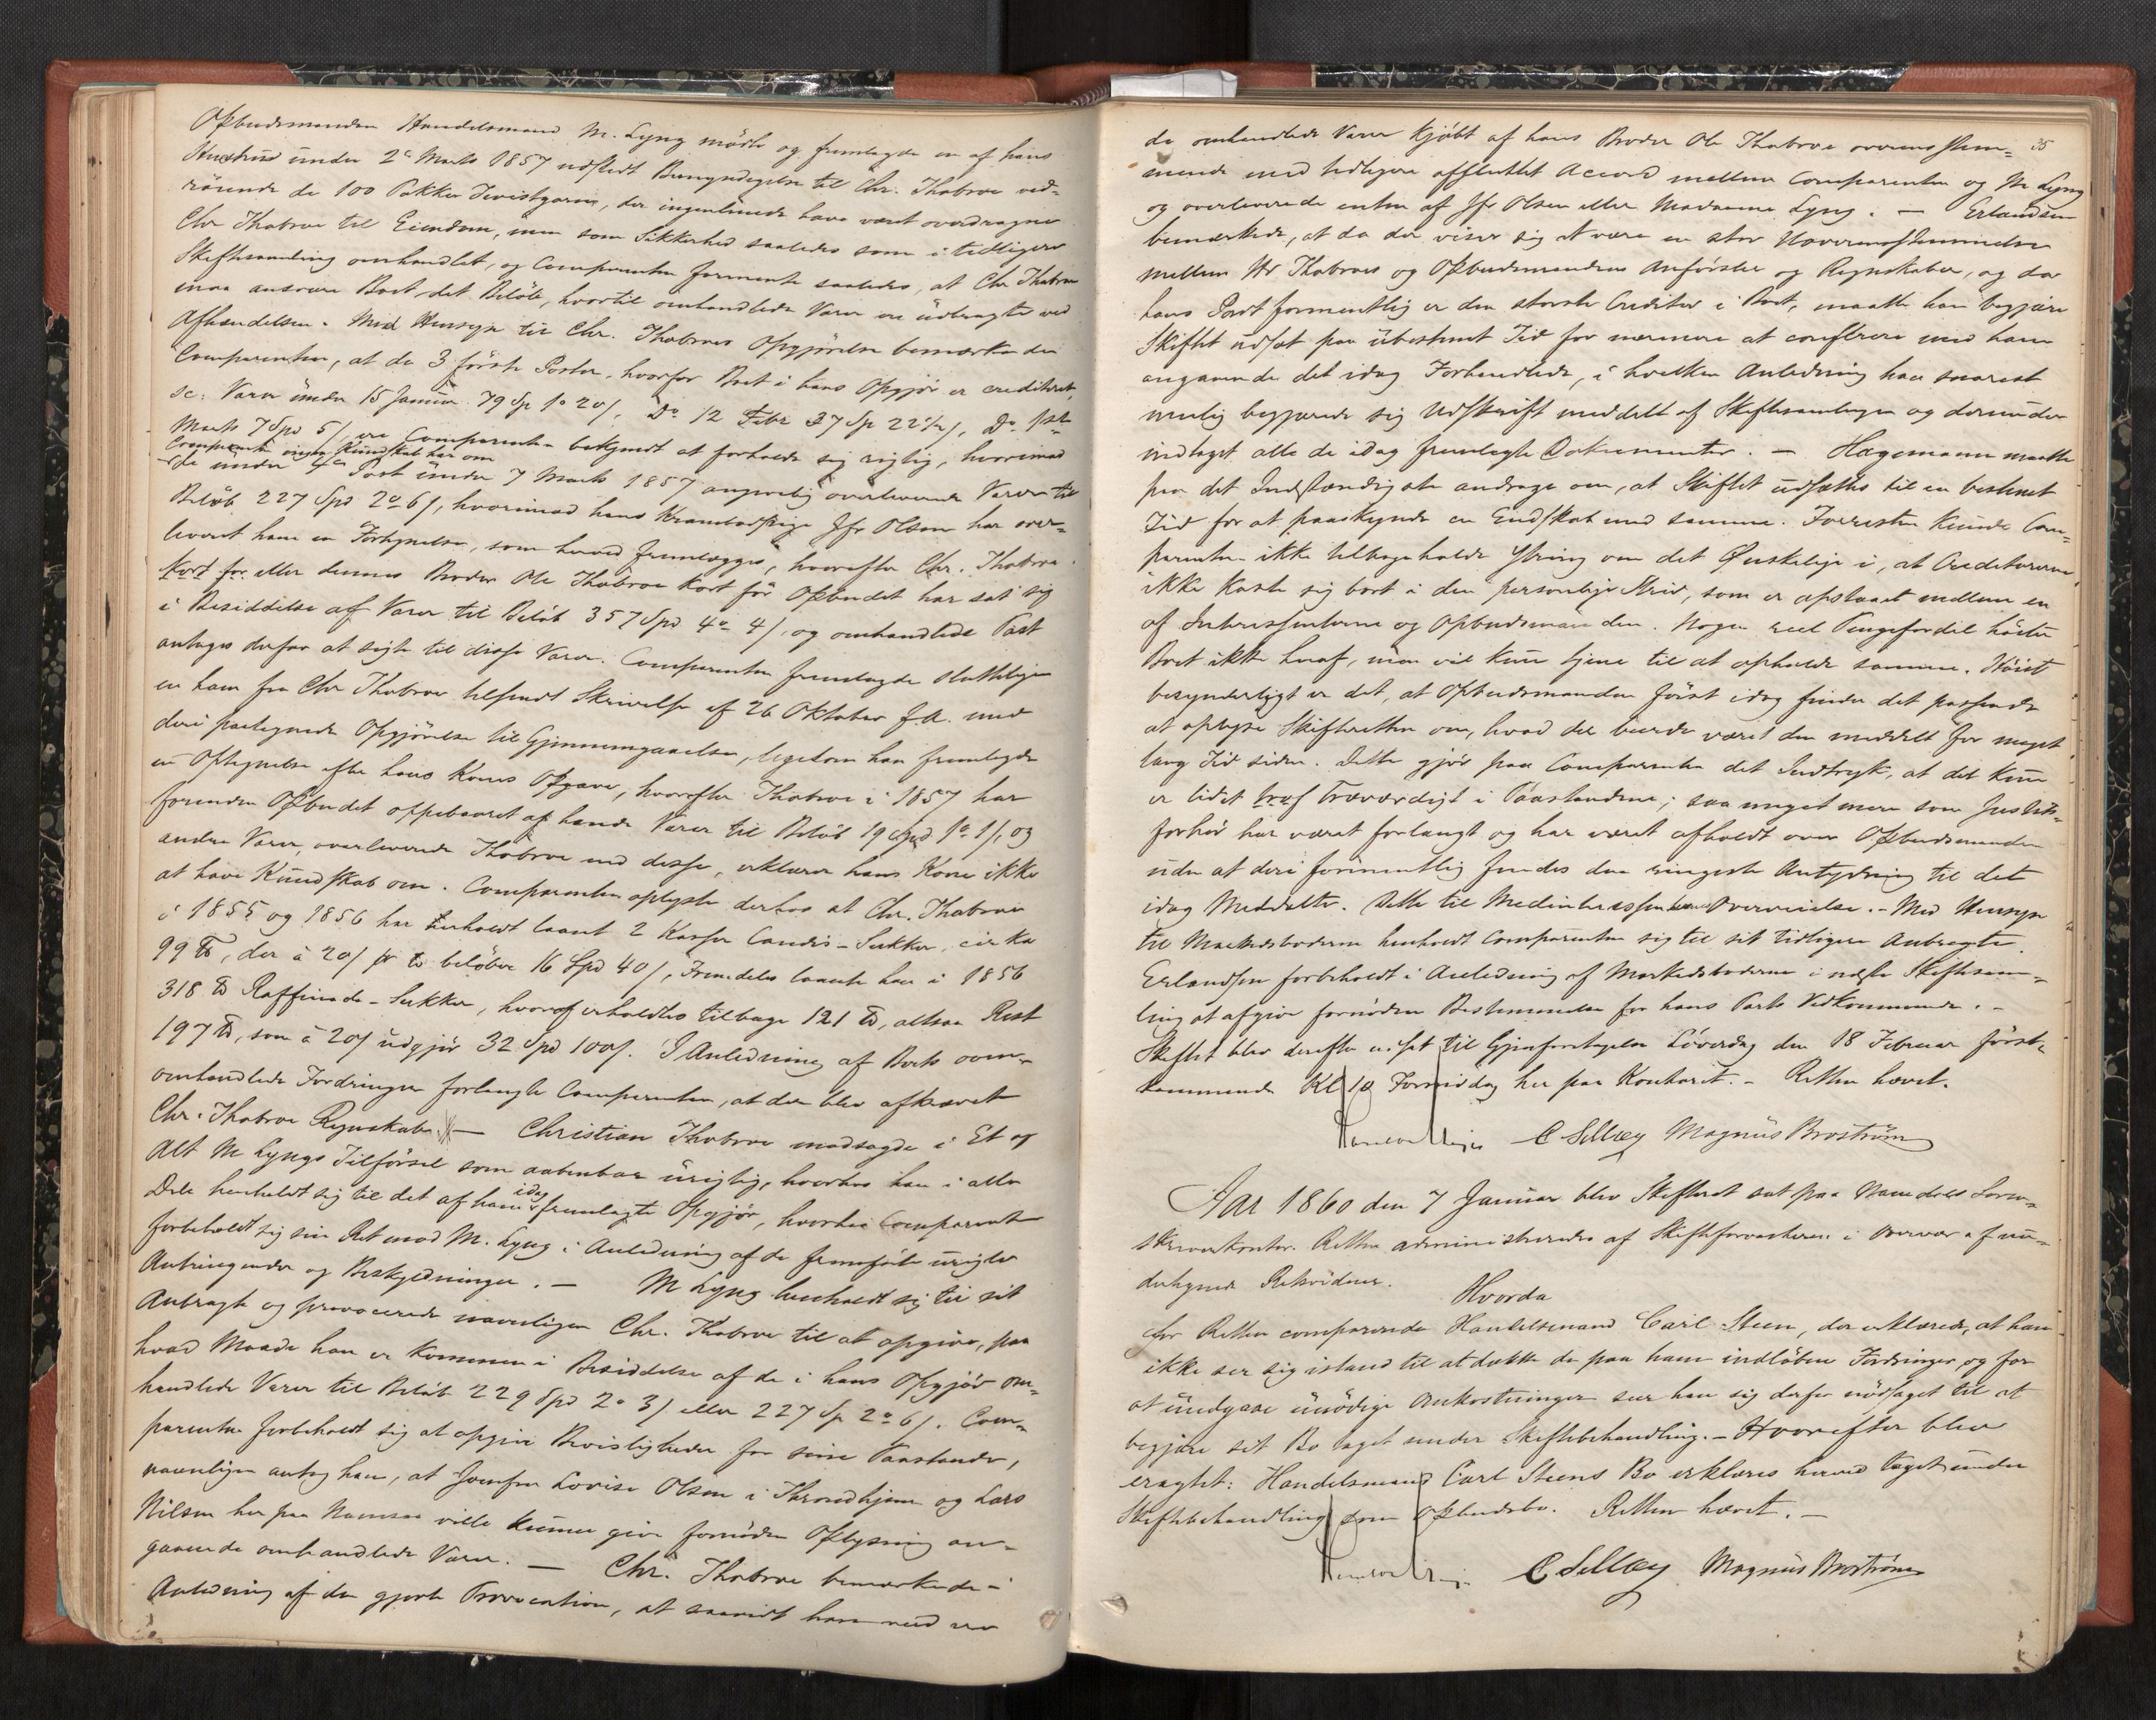 Opbudsmanden Handelsmand M. Lyng mødte og fremlagde en af hans
Hustru under 2den Marts 1857 udstedt Bemyndigelse til Chr. Thobroe ved-
rørende de 100 Pakker Tvistgarn, der ingenlunde have været overdragne
Chr Thobroe til Eiendom, men som Sikkerhed saaledes som i tidligere
Skiftesamling omhandlet, og Comparenten formente saaledes, at Chr Thobroe
maa ansvare Boet det Beløb, hvortil omhandlede Varer ere udbragte ved
Afhændelsen. Med Hensyn til Chr. Thobroes Opgjørelse bemærkede
Comparenten, at de 3 første Poster, hvorfor Boet i hans Opgjør er crediteret,
sc: Varer under 15 Januar 79 Sp 1 o 20 /, Do 12 Febr 37 Sp 22 1/2 /, Do 1ste
Marts 7 Spd 5 /, ere Comparenten bekjendt at forholde sig rigtig, hvorimod
Comparenten ingen Kundskab har om
de under 4de Post under 7 Marts 1857 angivelig overleverede Varer til
Beløb 227 Spd 2 o 6 /, hvorimod hans Krambodpige Jfr Olsen har over-
leveret ham en Fortegnelse, som herved fremlægges, hvorefter Chr. Thobroe
kort for eller dennes Broder Ole Thobroe kort før Opbudet har sat sig
i Besiddelse af Varer til Beløb 357 Spd 4 o 4 /, og omhandlede Post
antages derfor at sigte til disse Varer. Comparenten fremlagde sluttelig
en ham fra Chr Thobroe tilsendt Skrivelse af 26 Oktober f.A. med
deri paategnede Opgjørelse til Gjennemgaaelse, ligesom han fremlagde
en Optegnelse efter hans Kones Opgave, hvorefter Thobroe i 1857 har
forinden Opbudet oppebaaret af hende Varer til Beløb 19 Spd 1 o 1 /, og
andre Varer, overleverede Thobroe end disse, erklærer hans Kone ikke
at have Kundskab om. Comparenten oplyste derhos at Chr. Thobroe
i 1855 og 1856 har erholdt laant 2 Kasser Candis-Sukker, cirka
99 ℔, der à 20 / pr ℔ beløber 16 Spd 40 /, Fremdeles laante han i 1856
318 ℔ Raffinade-Sukker, hvoraf erholdtes tilbage 121 ℔, altsaa Rest
197 ℔, som à 20 / udgjør 32 Spd 100 /. I Anledning af Boets oven-
omhandlede Fordringer forlangte Comparenten, at der blev afkrævet
Chr. Thobroe Regnskab. — Christian Thobroe modsagde i Et og
Alt M Lyngs Tilførsel som aabenbar urigtig, hvorhos han i alle
Dele henholdt sig til det af ham idag fremlagte Opgjør, hvorhos Comparenten
forbeholdt sig sin Ret mod M. Lyng i Anledning af de fremførte urigtige
Anbringender og Beskyldninger. — M Lyng henholdt sig til sit
Anbragte og provocerede navnligen Chr. Thobroe til at opgive, paa
hvad Maade han er kommen i Besiddelse af de i hans Opgjør om-
handlede Varer til Beløb 229 Spd 2 o 3 / eller 227 Sp 2 o 6 /. Com-
parenten forbeholdt sig at opgive Bevisligheder for sine Paastande,
navnligen antog han, at Jomfru Lovise Olsen i Throndhjem og Lars
Nilsen her paa Namsos ville kunne give fornøden Oplysning an-
gaaende omhandlede Varer. — Chr. Thobroe bemærkede i
Anledning af den gjorte Provocation, at saavidt han ved ere
35
de omhandlede Varer kjøbt af hans Broder Ole Thobroe overensstem-
mende med tidligere afsluttet Accord mellem Comparenten og M Lyng
og overleverede enten af Jfr Olsen eller Madame Lyng. — Erlandsen
bemærkede, at da der viser sig at være en stor Uoverensstemmelse
mellem Hr Thobroes og Opbudsmandens Anførsler og Regnskaber, og da
hans Part formentlig er den største Creditor i Boet, maatte han begjære
Skiftet udsat paa ubestemt Tid for nærmere at conferere med ham
angaaende det idag Forhandlede, i hvilken Anledning han snarest
mulig begjærede sig Udskrift meddelt af Skiftesamlingen og derunder
indtaget alle de idag fremlagte Dokumenter. — Hagemann maatte
paa det Indstændigste andrage om, at Skiftet udsættes til en bestemt
Tid for at paaskynde en Endskab med samme. Forresten kunde Com-
parenten ikke tilbageholde Ytring om det Ønskelige i, at Creditorerne
ikke kaste sig bort i den personlige Strid, som er opstaaet mellem en
af Interessenterne og Opbudsmanden. Nogen reel Pengefordel høster
Boet ikke heraf, men vil kun tjene til at opholde samme. Høist
besynderligt er det, at Opbudsmanden først idag finder det passende
at oplyse Skifteretten om, hvad der burde været den meddelt for meget
lang Tid siden. Dette gjør paa Comparenten det Indtryk, at det kun
er lidet Troværdigt i Paastandene; saa meget mere som Justits-
forhør har været forlangt og har været afholdt over Opbudsmanden
uden at deri formentlig findes den ringeste Antydning til det
idag Meddelte. Dette til Medinteressenternes Overveielse. — Med Hensyn
til Markedsboderne henholdt Comparenten sig til sit tidligere Anbragte.
Erlandsen forbeholdt i Anledning af Markedsboderne i næste Skiftesam-
ling at afgive fornøden Bestemmelse for hans Parts Vedkommende. —
Skiftet blev derefter udsat til Gjenforetagelse Løverdag den 18 Februar først-
kommende Kl 10 Formiddag her paa Kontoret. — Retten hævet.
C Sellæg Magnus Brostrøm
Aar 1860 den 7 Januar blev Skifteret sat paa Namdals Soren-
skriverkontor. Retten administreredes af Skifteforvalteren i Overvær af un-
dertegnede Retsvidner.
Hvorda
for Retten comparerede Handelsmand Carl Steen, der erklærede, at han
ikke ser sig istand til at dække de paa ham indløbne Fordringer, og for
at undgaae unødige Omkostninger seer han sig derfor nødsaget til at
begjære sit Bo taget under Skiftebehandling. — Hvorefter blev
eragtet: Handelsmand Carl Steens Bo erklæres herved taget under
Skiftebehandling som Opbudsbo. Retten hævet. —
C Sellæg Magnus Brostrøm